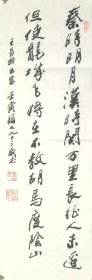 秦時明月漢時關萬里長征人未還
但使龍城飛將在不教胡馬度陰山
王昌齡出塞